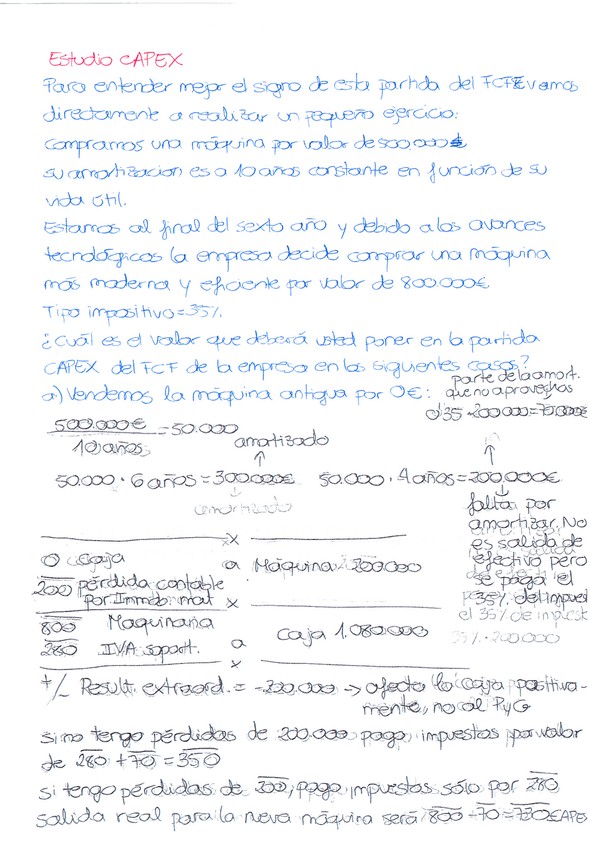 Estudio CAPEX
Para entender mejor el signo de esta partida del FCF vamos
directamente a realizar un pequeño ejercicio:
Compramos una máquina por valor de 500.000€
su amortización es a 10 años constante en función de su
vida útil.
Estamos al final del sexto año y debido a los avances
tecnológicos la empresa decide comprar una máquina
más moderna y eficiente por valor de 800.000€
Tipo impositivo=35%.
¿Cuál es el valor que deberá usted poner en la partida
CAPEX del FCF de la empresa en los siguientes casos?
a) Vendemos la máquina antigua por 0€:
parte de la amort.
que no aprovechas
0'35·200.000=70.000€
500.000€ / 10 años =50.000
amortizado
50.000·6 años=300.000€ 50.000·4 años=200.000€
amortizado
falta por
amortizar. No
es salida de
efectivo pero
se paga el
35% del impues
el 35% de impuest
35%·200.000
x
0 Caja a Máquina 200.000
200 pérdida contable
por Inmob. mat x
800 Maquinaria
280 IVA soport. a Caja 1.080.000
x
+/- Result. extraord. = -200.000 → afecta la caja positiva-
mente, no al PyG
si no tengo pérdidas de 200.000 pago impuestos por valor
de 280 + 70 = 350
si tengo pérdidas de 200, pago impuestos sólo por 280
salida real para la nueva máquina será 800 - 70 = 730 CAPE